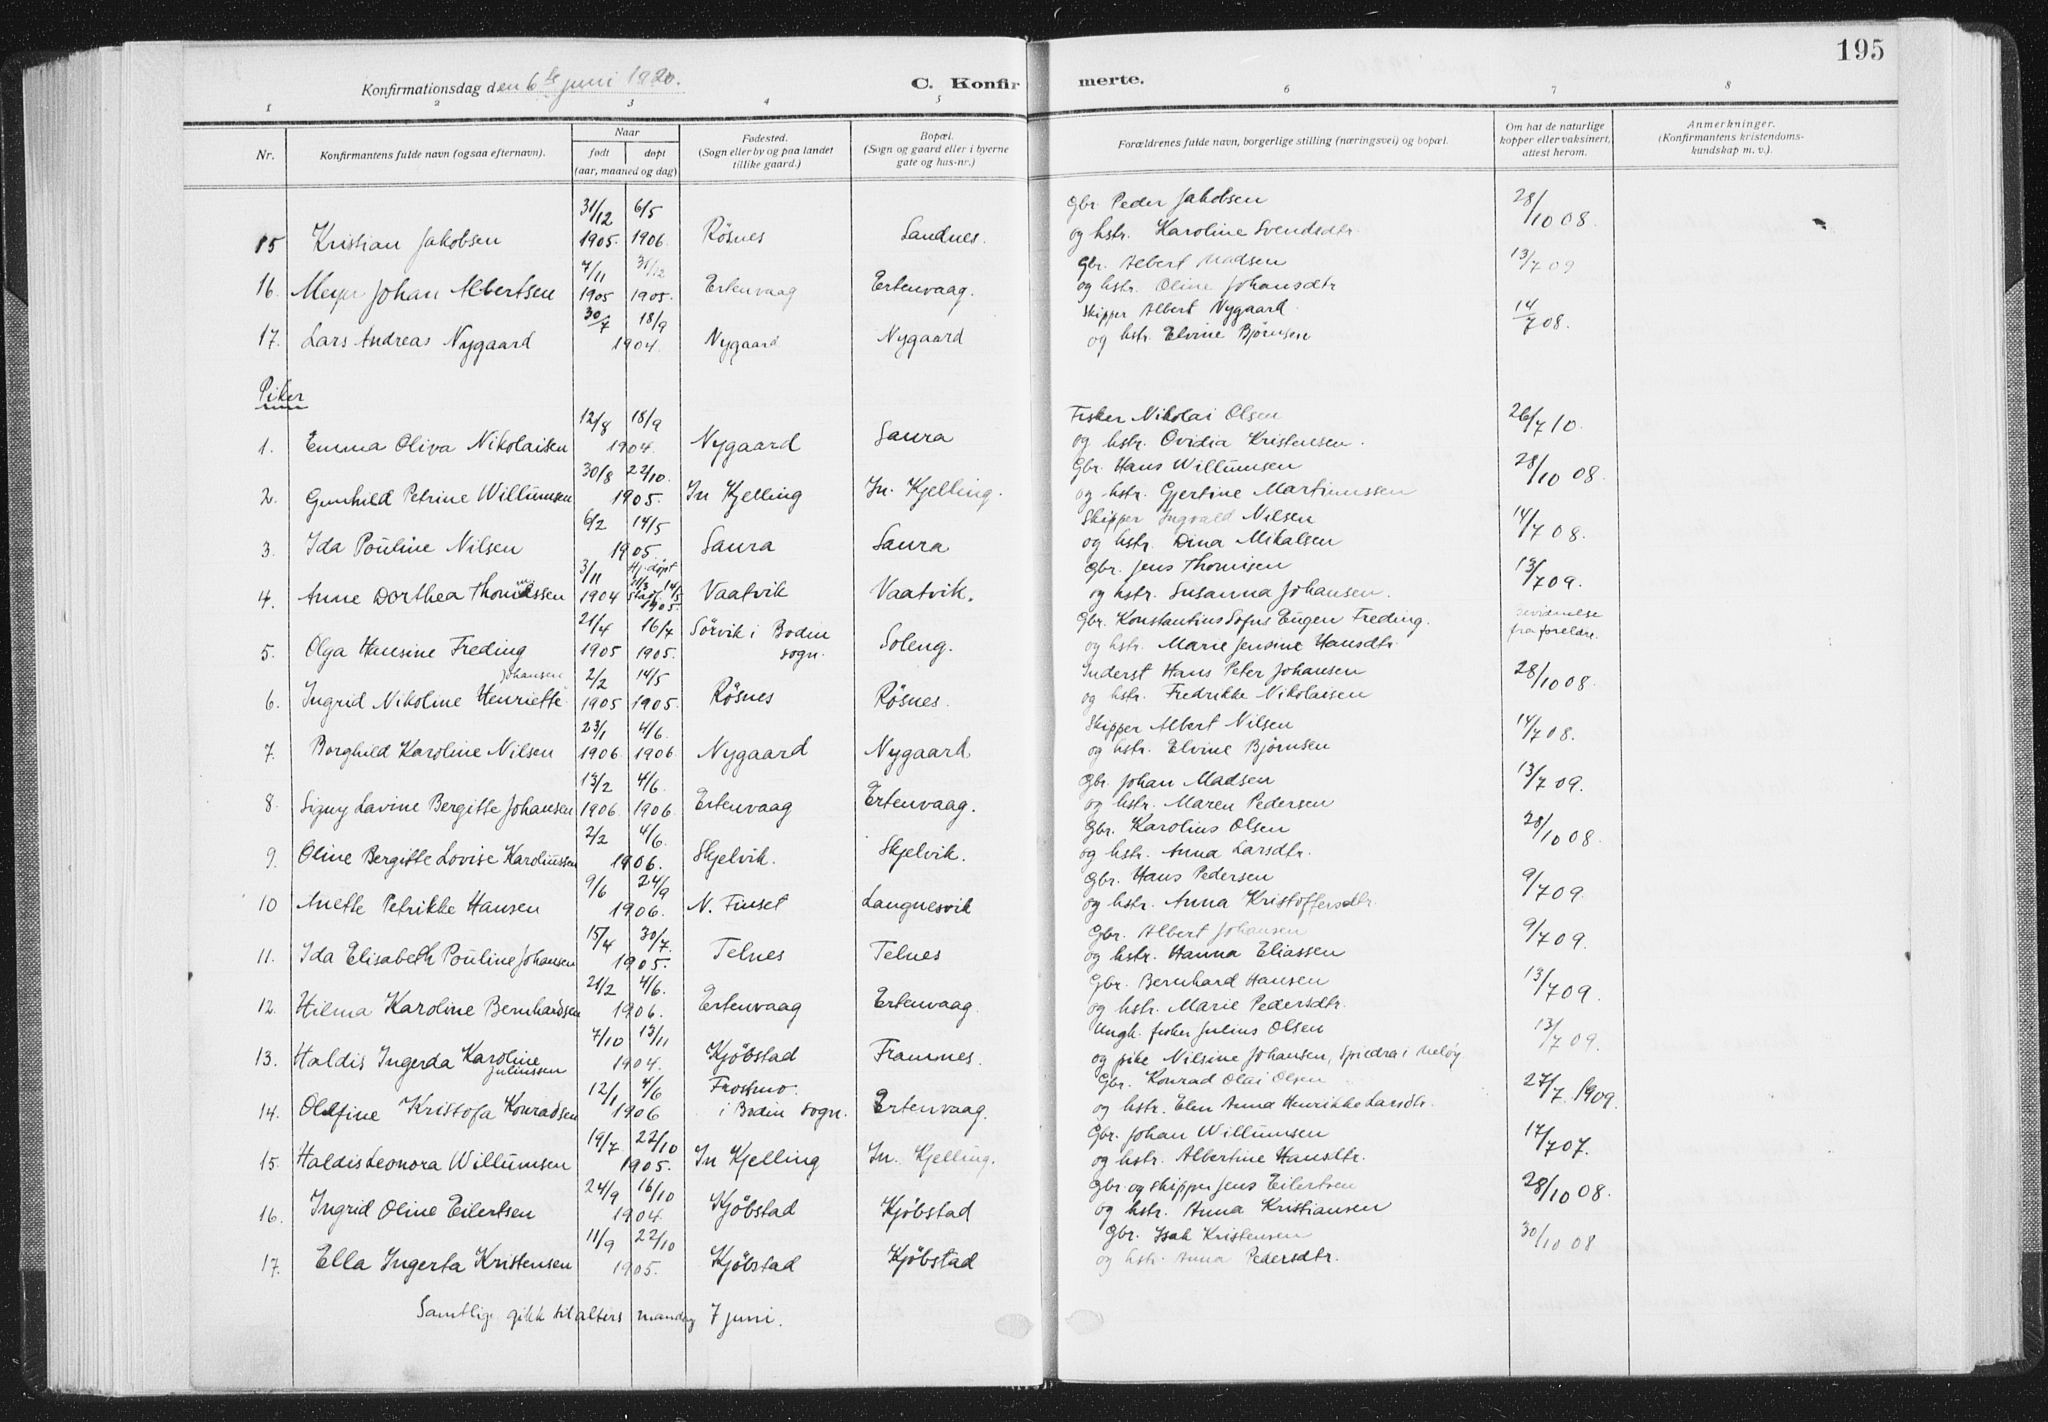 195
Konfirmationsdag den 6te juni 1920.
C. Konfirmerte.
1 2 3 4 5 6 7 8
Nr.
Konfirmantens fulde navn (ogsaa efternavn).
Naar
født døpt
(aar, maaned og dag)
Fødested.
(Sogn eller by og paa landet
tillike gaard.)
Bopæl.
(Sogn og gaard eller i byerne
gate og hus-nr.)
Forældrenes fulde navn, borgerlige stilling (næringsvei) og bopæl.
Om hat de naturlige
kopper eller vaksinert,
attest herom.
Anmerkninger.
(Konfirmantens kristendoms-
kundskap m. v.).
31/12 6/5 Gbr. Peder Jakobsen 28/10 08.
15 Kristian Jakobsen 1905. 1906. Rösnes Sandnes. og hstr. Karoline Svendsdtr.
7/11 31/12 Gbr. Albert Madsen 13/7 09
16. Meyer Johan Albertsen 1905 1905. Ertenvaag Ertenvaag. og hstr. Oline Johansdtr
30/7 18/9 Skipper Albert Nygaard 14/7 08.
17. Lars Andreas Nygaard 1904. Nygaard Nygaard og hstr. Elvine Bjørnsen
Piker
12/8 18/9 Fisker Nikolai Olsen 26/7 10.
1. Emma Oliva Nikolaisen 1904. Nygaard Saura og hstr. Ovidia Kristensen.
30/8 22/10. Gbr. Hans Willumsen 28/10 08.
2. Gunhild Petrine Willumsen 1905. In Kjelling In. Kjelling. og hstr. Gjertine Martinussen
6/2 14/5 Skipper Ingvald Nilsen 14/7 08.
3. Ida Pouline Nilsen 1905. Saura Saura og hstr. Dina Mikalsen
3/11 Hj. døpt 21/3 Gbr. Jens Thomsen 13/7 09.
4. Anne Dorthea Thomassen 1904 stadf. 14/5 1905. Vaatvik Vaatvik. og hstr. Susanna Johansen.
21/4 16/7 Sörvik i Bodin Gbr. Konstantius Sofus Eugen Freding.
5. Olga Hansine Freding 1905 1905. sogn. Soleng. og hstr. Marie Jensine Hansdtr. fra foreldre.
Johansen 2/2 14/5 Inderst Hans Peter Johansen 28/10 08.
6. Ingrid Nikoline Henriette 1905 1905. Rösnes Rösnes. og hstr. Fredrikke Nikolaisen
23/1 4/6. Skipper Albert Nilsen 14/7 08.
7. Borghild Karoline Nilsen 1906 1906. Nygaard Nygaard og hstr. Elvine Bjørnsen
13/2 4/6. Gbr. Johan Madsen 13/7 09.
8. Signy Lavine Bergitte Johansen 1906. 1906. Ertenvaag Ertenvaag. og hstr. Maren Pedersen
2/2 4/6. Gbr. Karolius Olsen 28/10 08.
9. Oline Bergitte Lovise Karoliussen 1906. Skjelvik. Skjelvik. og hstr. Anna Larsdtr.
9/6 24/9 Gbr. Hans Pedersen 9/7 09.
10 Anette Petrikke Hansen 1906. N. Finset Langnesvik og hstr. Anna Kristoffersdtr.
15/4 30/7. Gbr. Albert Johansen 9/7 09.
11. Ida Elisabeth Pouline Johansen 1905. Telnes Telnes og hstr. Hanna Eliassen
21/2 4/6. Gbr. Bernhard Hansen 13/7 09.
12. Hilma Karoline Bernhardsen 1906. Ertenvaag Ertenvaag og hstr. Marie Pedersdtr.
7/10 13/11 Ungk. fisker Julius Olsen 13/7 09.
13. Haldis Ingerda Karoline Juliussen 1904. Kjöbstad Framnes. og pike Nilsine Johansen, Spildra i Meløy
12/1 4/6 Frostmo. Gbr. Konrad Olai Olsen 27/7. 1909.
14. Olefine Kristofa Konradsen 1906 i Bodin sogn. Ertenvaag. og hstr. Elen Anna Henrikke Larsdtr.
19/7 22/10 Gbr. Johan Willumsen 17/7 07.
15. Haldis Leonora Willumsen 1905. In Kjelling In. Kjelling. og hstr. Albertine Hansdtr.
24/9 16/10 Gbr. og skipper Jens Eilertsen 28/10 08.
16. Ingrid Oline Eilertsen 1904. Kjöbstad Kjöbstad og hstr. Anna Kristiansen
11/9 22/10 Gbr. Isak Kristensen 30/10 08
17. Ella Ingerta Kristensen 1905. Kjöbstad Kjöbstad og hstr. Anna Pedersdtr.
Samtlige gikk til alters mandag 7 juni.